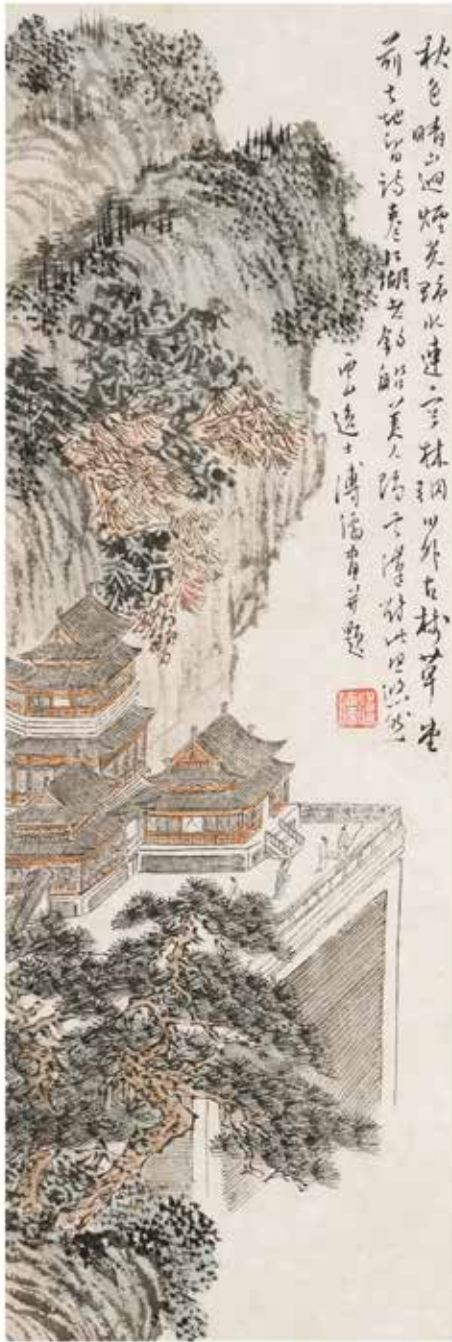 秋色晴山迥煙光野水連空林輞川外古樹草堂
前天地留詩卷江湖老釣船美人隔雲漢對此思悠然
西山逸士溥儒畫并題